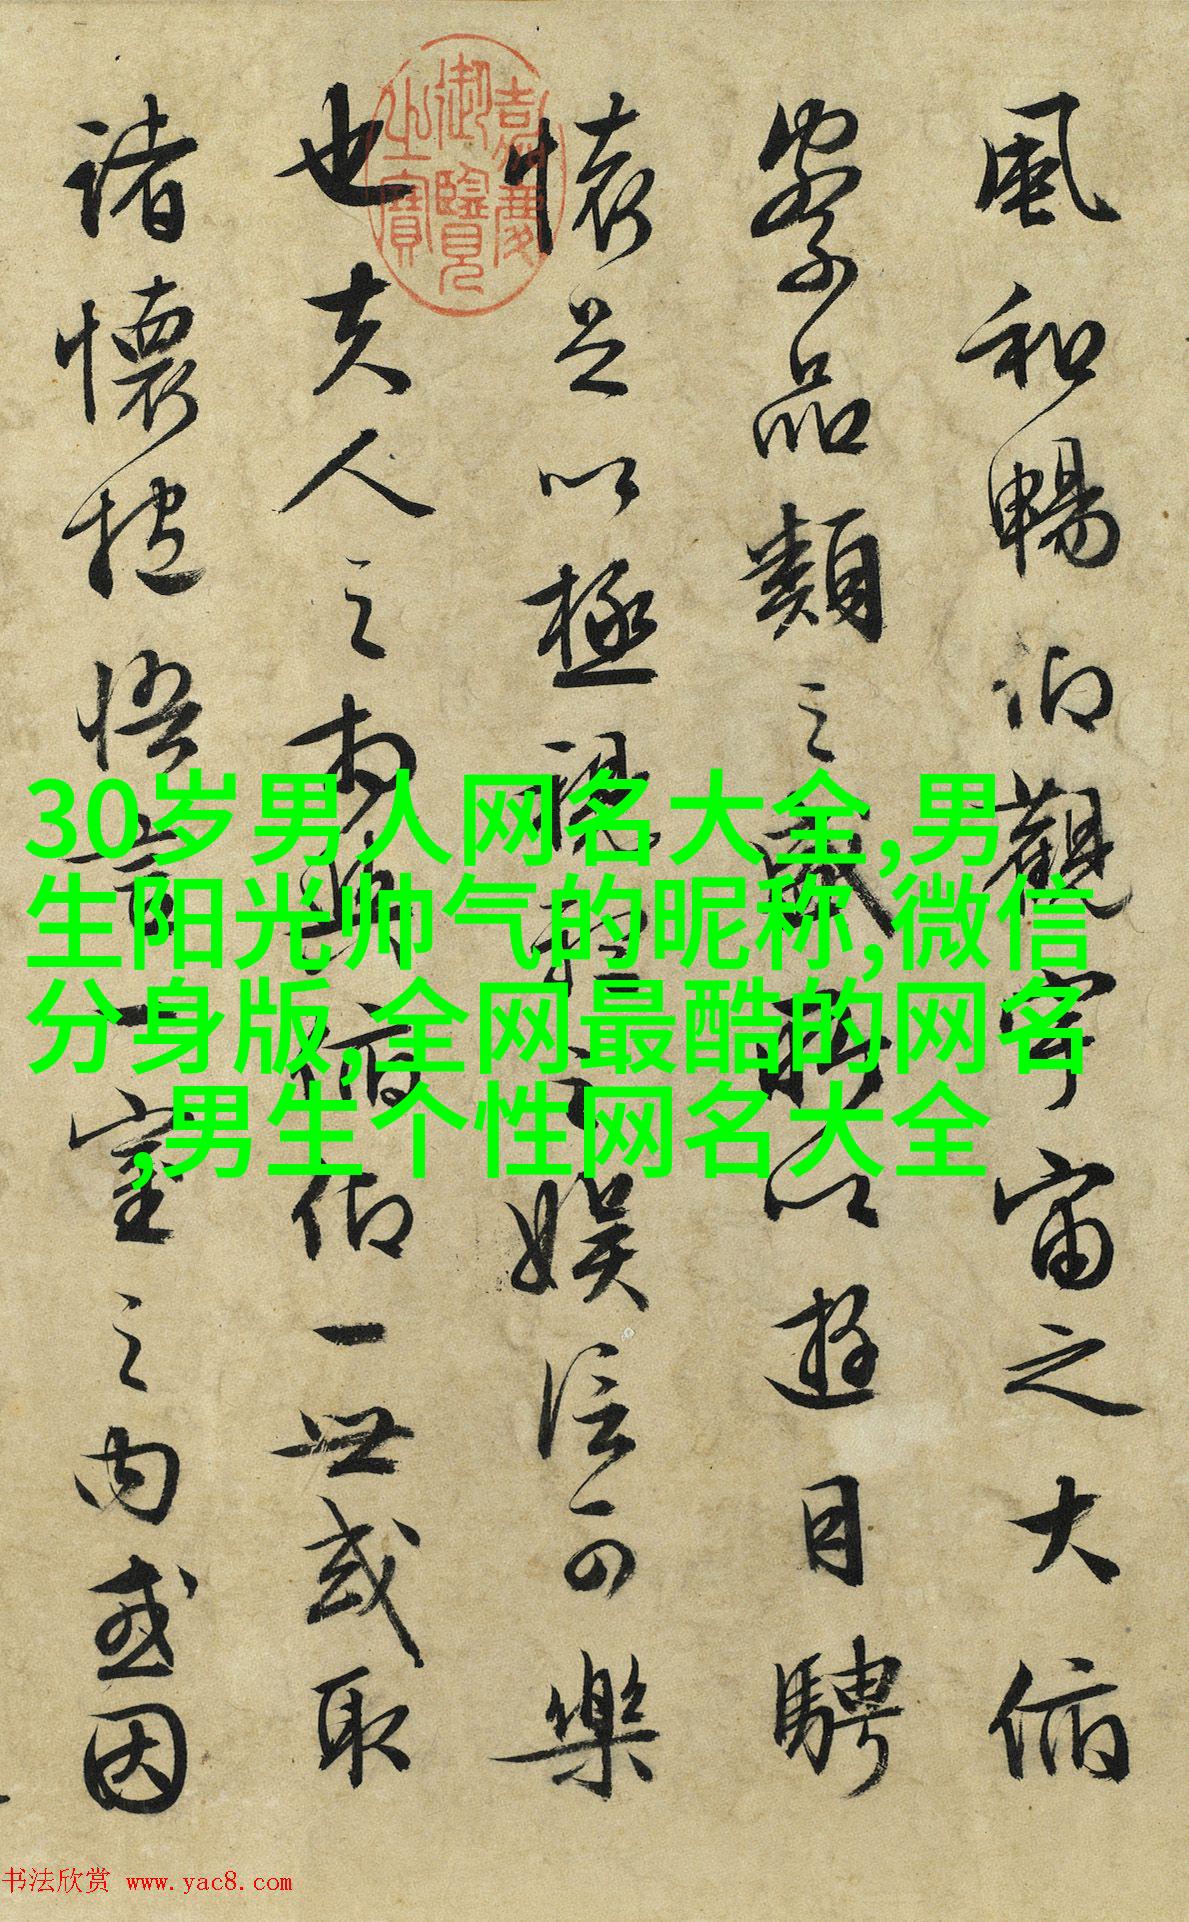 風和暢仰觀宇宙之大俯
察品類之盛所以遊目騁
懷足以極視聽之娛信可樂
也夫人之相與俯仰一世或取
諸懷抱悟言一室之內或因
嘉慶御覽之寶
30岁男人网名大全,男
生阳光帅气的昵称,微信
分身版,全网最酷的网名
,男生个性网名大全
书法欣赏 www.yac8.com